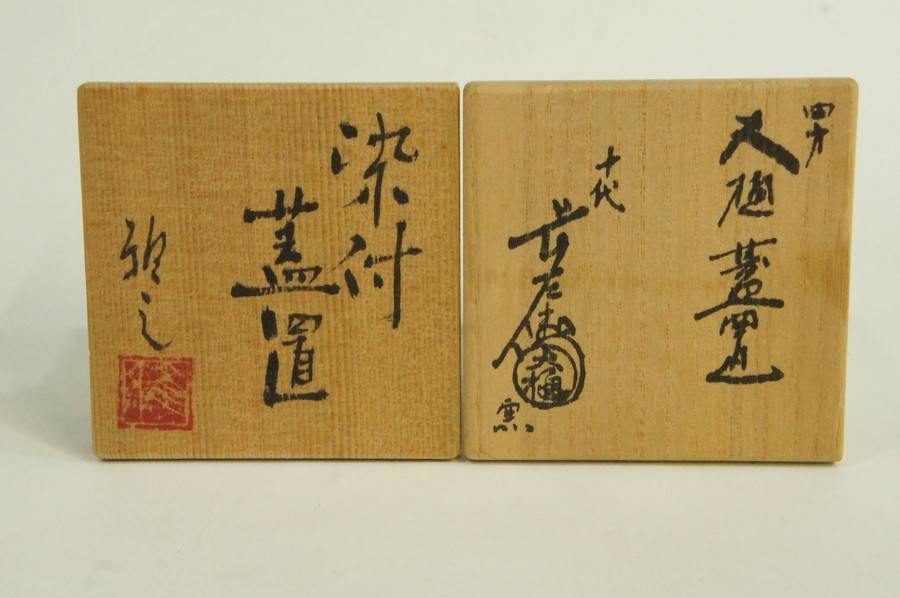 染付
蓋置
雅之
大樋 蓋置
十代
長左衛門
大樋
窯